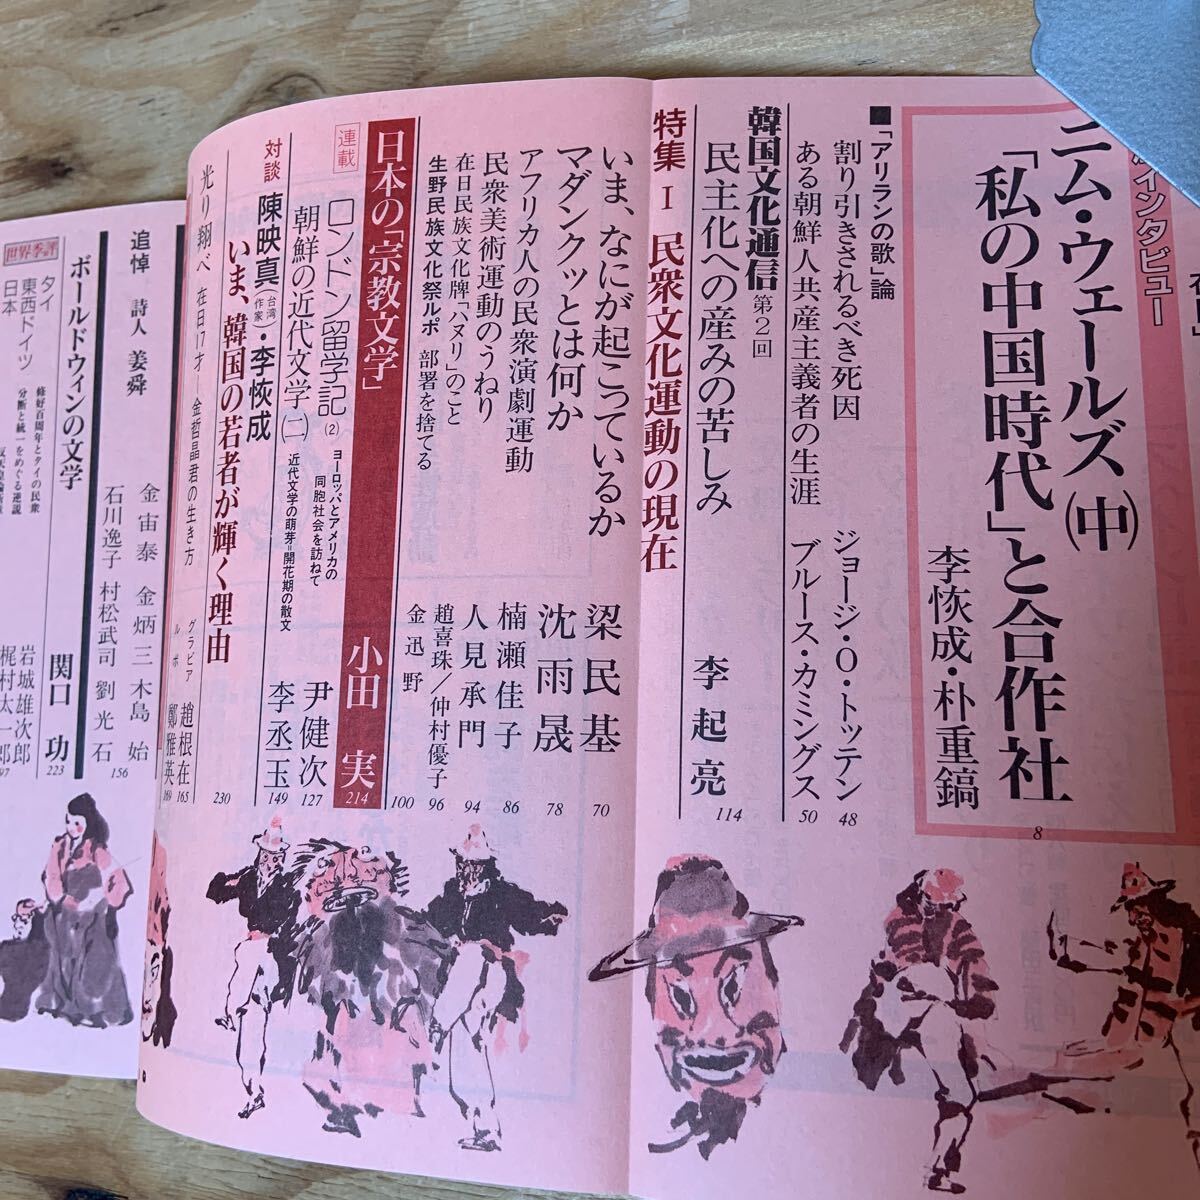 インタビュー
ニム・ウェールズ(中)
「私の中国時代」と合作社
李恢成・朴重鎬
8
■「アリランの歌」論
割り引きされるべき死因
ジョージ・O・トッテン
48
ある朝鮮人共産主義者の生涯
ブルース・カミングス
50
韓国文化通信 第2回
民主化への産みの苦しみ
李起亮
114
特集Ⅰ 民衆文化運動の現在
いま、なにが起こっているか
梁民基
70
マダンクッとは何か
沈雨晟
78
アフリカ人の民衆演劇運動
楠瀬佳子
86
民衆美術運動のうねり
人見承門
94
在日民族文化牌「ハヌリ」のこと
趙喜珠/仲村優子
96
生野民族文化祭ルポ 部署を捨てる
金迅野
100
日本の「宗教文学」
小田 実
214
連載
ロンドン留学記(2)
ヨーロッパとアメリカの
同胞社会を訪ねて
尹健次
127
朝鮮の近代文学(二)
近代文学の萌芽=開花期の散文
李丞玉
149
対談 陳映真(台湾作家)・李恢成
いま、韓国の若者が輝く理由
230
光り翔べ 在日17才―金哲晶君の生き方
グラビア 趙根在
165
ルポ 鄭雅英
169
追悼 詩人 姜舜
金宙泰 金炳三 木島 始
石川逸子 村松武司 劉光石
156
ボールドウィンの文学
関口 功
223
世界季評
タイ
修好百周年とタイの民衆
岩城雄次郎
東西ドイツ
分断と統一をめぐる逆説
梶村太一郎
日本
97